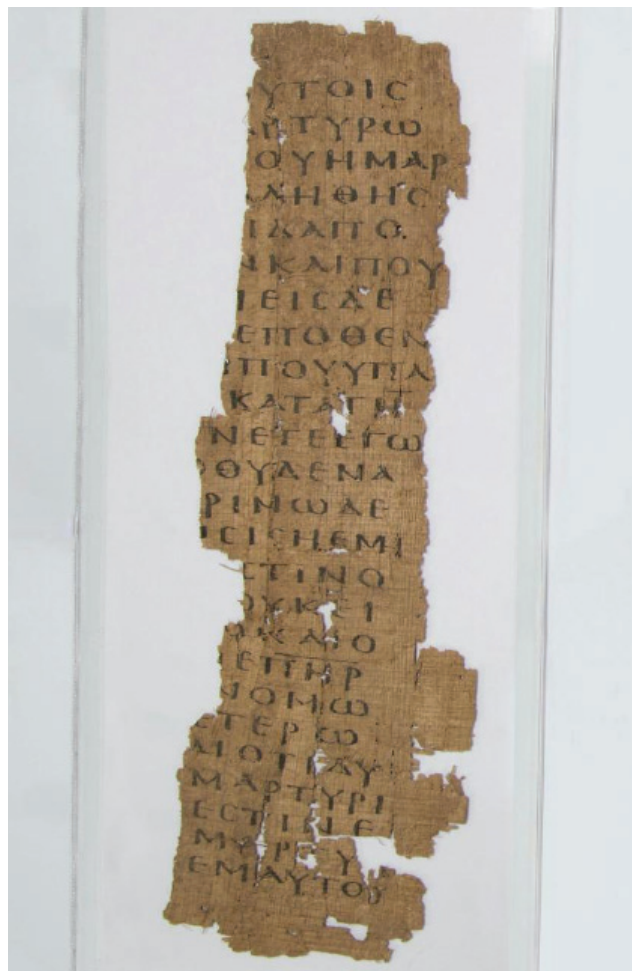 ΥΤΟΙϹ
ΑΡΤΥΡΩ
ΟΥΗΜΑΡ
ΛΗΘΗϹ
ΙΔΑΠΟ
ΝΚΑΙΠΟΥ
ΜΕΙϹΔΕ
ΕΠΟΘΕΝ
ΠΟΥΥΠΑ
ΚΑΤΑΤΗ
ΝΕΤΕΕΓΩ
ΟΥΔΕΝΑ
ΡΙΝΩΔΕ
ϹΙϹΗΕΜΗ
ϹΤΙΝΟ
ΟΥΚΕΙ
ΚΑΙΟ
ΕΠΗΡ
ΝΟΜΩ
ΕΤΕΡΩ
ΜΟΤΙΔΥ
ΜΑΡΤΥΡΙ
ΕϹΤΙΝΕ
ΕΜΑΥΤΟΥ